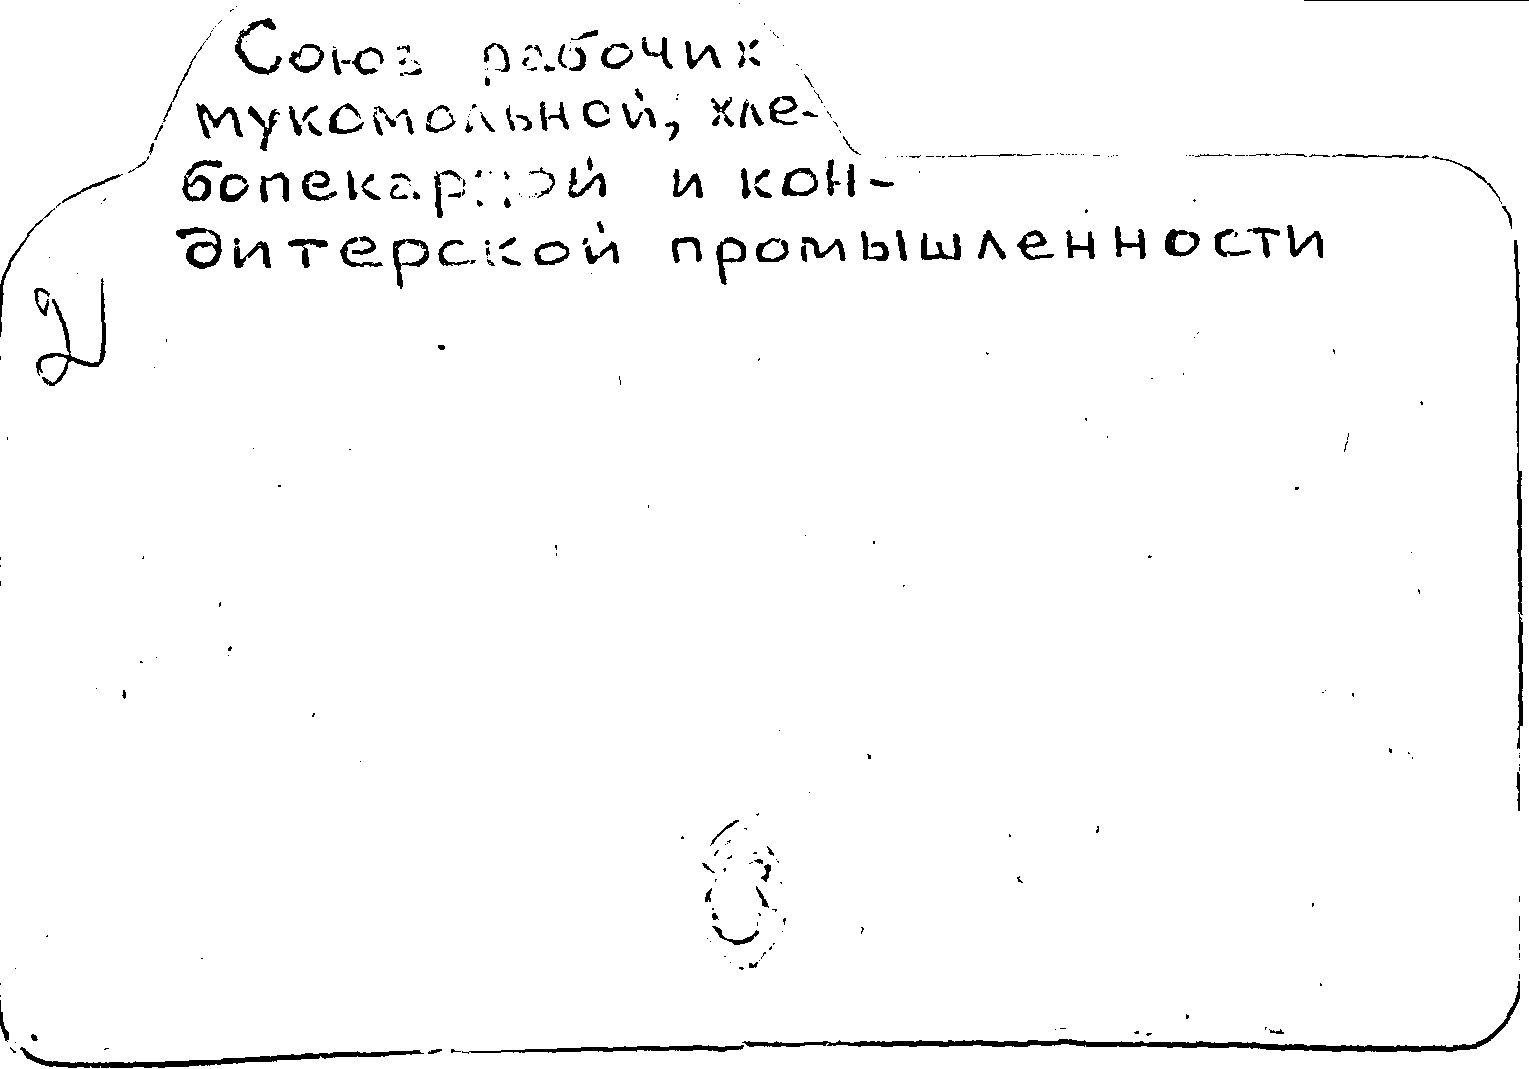 Союз рабочих
мукомольной, хле-
бопекарной и кон-
дитерской промышленности